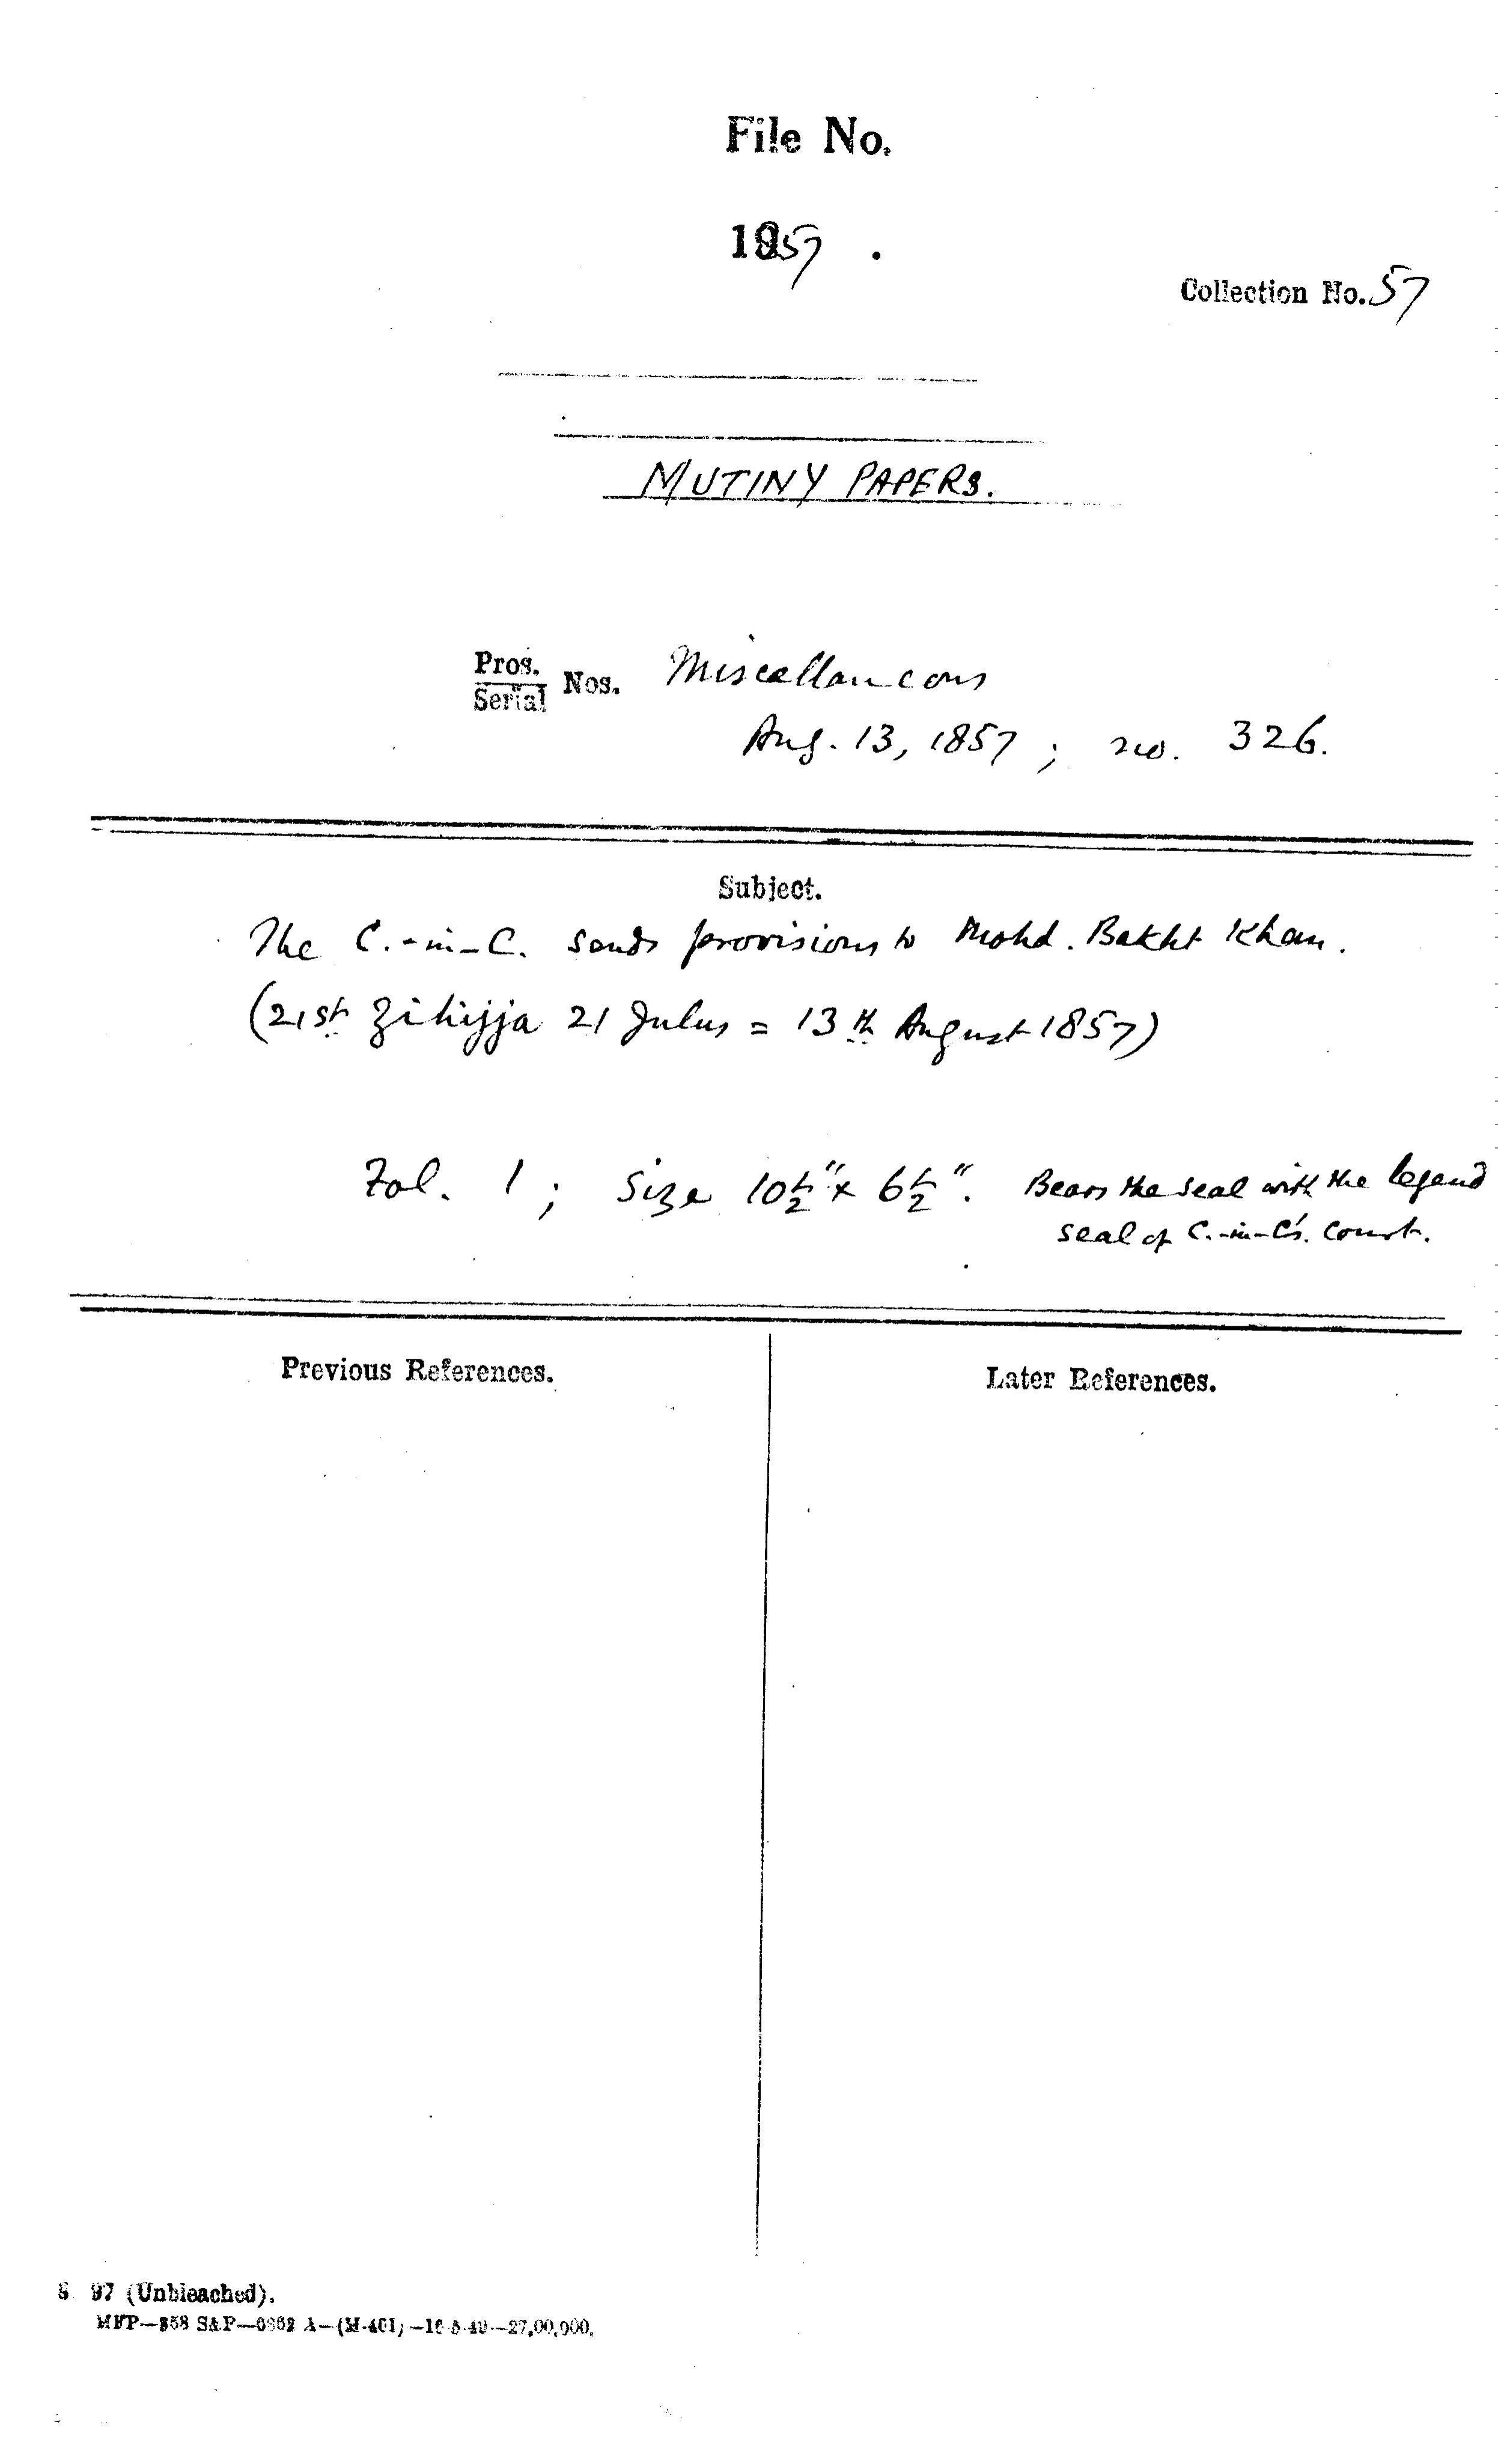 File No.
1857 .
Collection No. 57
MUTINY PAPERS.
Pros.
Serial Nos. Miscellaneous
Aug. 13, 1857 ; no. 326.
Subject.
The C.-in-C. sends provisions to Mohd. Bakht Khan.
(21st Zihijja 21 Julus = 13th August 1857)
Fol. 1 ; Size 10½" x 6½". Bears the seal with the legend
seal of C.-in-C's. Court.
Previous References.
Later References.
S 97 (Unbleached).
MFP—858 S&P—